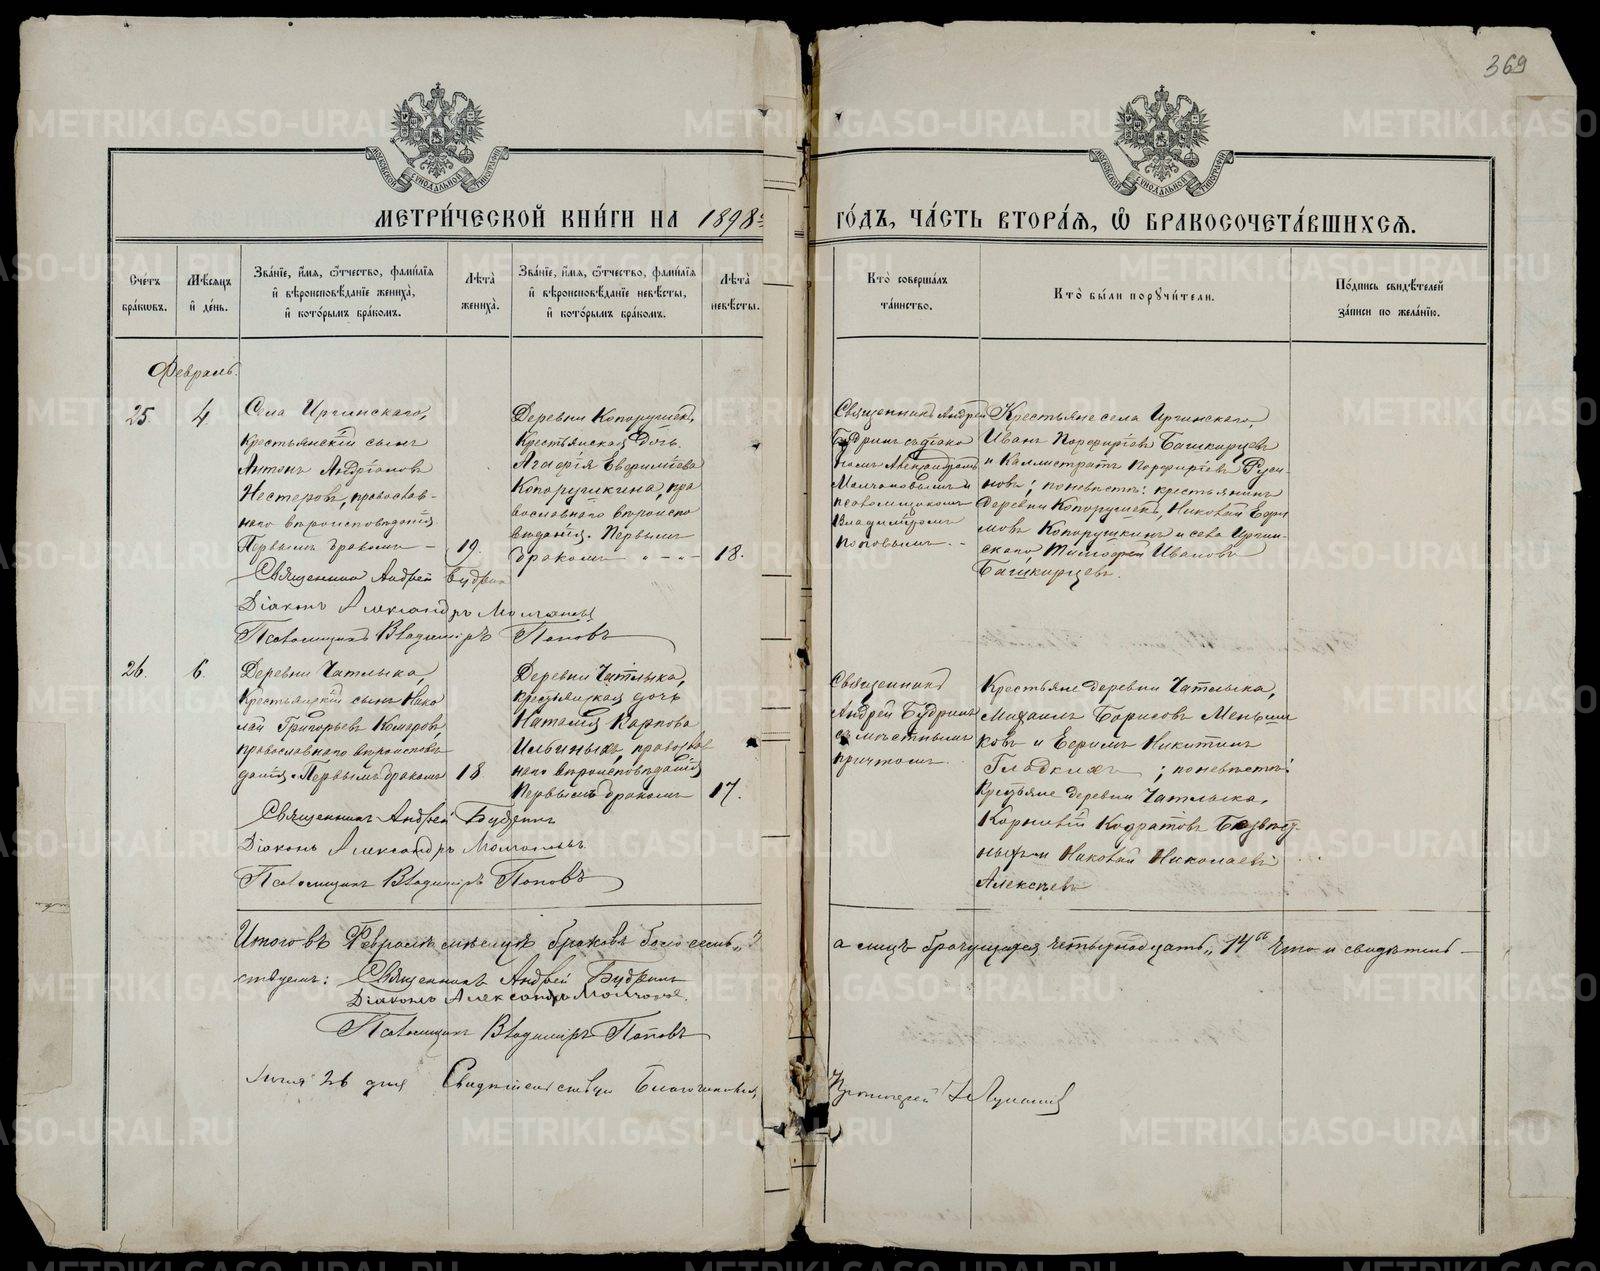 369
МОСКОВСКОЙ СѴНОДАЛЬНОЙ ТИПОГРАФІИ
МОСКОВСКОЙ СѴНОДАЛЬНОЙ ТИПОГРАФІИ
МЕТРИ́ЧЕСКОЙ КНИ́ГИ НА 1898
ГО́ДЪ, ЧА́СТЬ ВТОРА́Ѧ, Ѽ БРАКОСОЧЕТА́ВШИХСѦ.
Сче́тъ бра́ковъ.
Мѣ́сѧцъ и҆ де́нь.
Зва́нїе, и҆́мѧ, ѻ҆́тчество, фами́лїѧ и҆ вѣроисповѣ́данїе жениха̀, и҆ кото́рымъ бра́комъ.
Лѣ́та жениха̀.
Зва́нїе, и҆́мѧ, ѻ҆́тчество, фами́лїѧ и҆ вѣроисповѣ́данїе невѣ́сты, и҆ кото́рымъ бра́комъ.
Лѣ́та невѣ́сты.
Кто̀ соверша́лъ та́инство.
Кто̀ бы́ли порꙋчи́тели.
По́дпись свидѣ́телей за́писи по жела́нїю.
Февраль.
25.
4.
Села Иргинскаго,
крестьянскій сынъ
Антонъ Андріановъ
Нестеровъ, православ-
наго вѣроисповѣданія
Первымъ бракомъ –
19.
Деревни Копорушекъ,
Крестьянская дочь
Агафія Евфиміева
Копорушкина, пра
вославнаго вѣроиспо
вѣданія. Первымъ
бракомъ
18.
Священникъ Андрей
Будринъ съ діако
номъ Александромъ
Молчановымъ и
псаломщикомъ
Владиміромъ
Поповымъ.
Крестьяне села Иргинскаго,
Иванъ Порфиріевъ Башкирцевъ
и Каллистратъ Порфиріевъ Руси-
новъ; по невѣстѣ: крестьянинъ
деревни Копорушекъ,
Копорушкинъ и села Иргин-
скаго Тимофей Ивановъ
Башкирцевъ.
Священникъ Андрей Будринъ
Діаконъ Александръ Молчановъ
Псаломщикъ Владиміръ Поповъ
26.
6.
Деревни Чатлыка,
Крестьянскій сынъ Нико
лай Григорьевъ Комаровъ,
православнаго вѣроисповѣ
данія. Первымъ бракомъ
18
Деревни Чатлыка,
крестьянская дочь
Наталія Карпова
Ильиныхъ, православ
наго вѣроисповѣданія
Первымъ бракомъ
17.
Священникъ
Андрей Будринъ
съ мѣстнымъ
причтомъ.
Крестьяне деревни Чатлыка,
Михаилъ Борисовъ Меньши
ковъ и Ефимъ Никитинъ
Гладкихъ; по невѣстѣ:
Крестьяне деревни Чатлыка,
Корнилій Кодратовъ
и Николай Николаевъ
Алексѣевъ
Священникъ Андрей Будринъ
Діаконъ Александръ Молчановъ
Псаломщикъ Владиміръ Поповъ
Итого въ Февралѣ мѣсяцѣ браковъ было семь „7
а лицъ брачущихся четырнадцать „14“ Что и свидѣтель –
ствуемъ: Священникъ Андрей Будринъ
Діаконъ Александръ Молчановъ.
Псаломщикъ Владиміръ Поповъ
26 дня Благочинный,
Протоіерей
METRIKI.GASO-URAL.RU